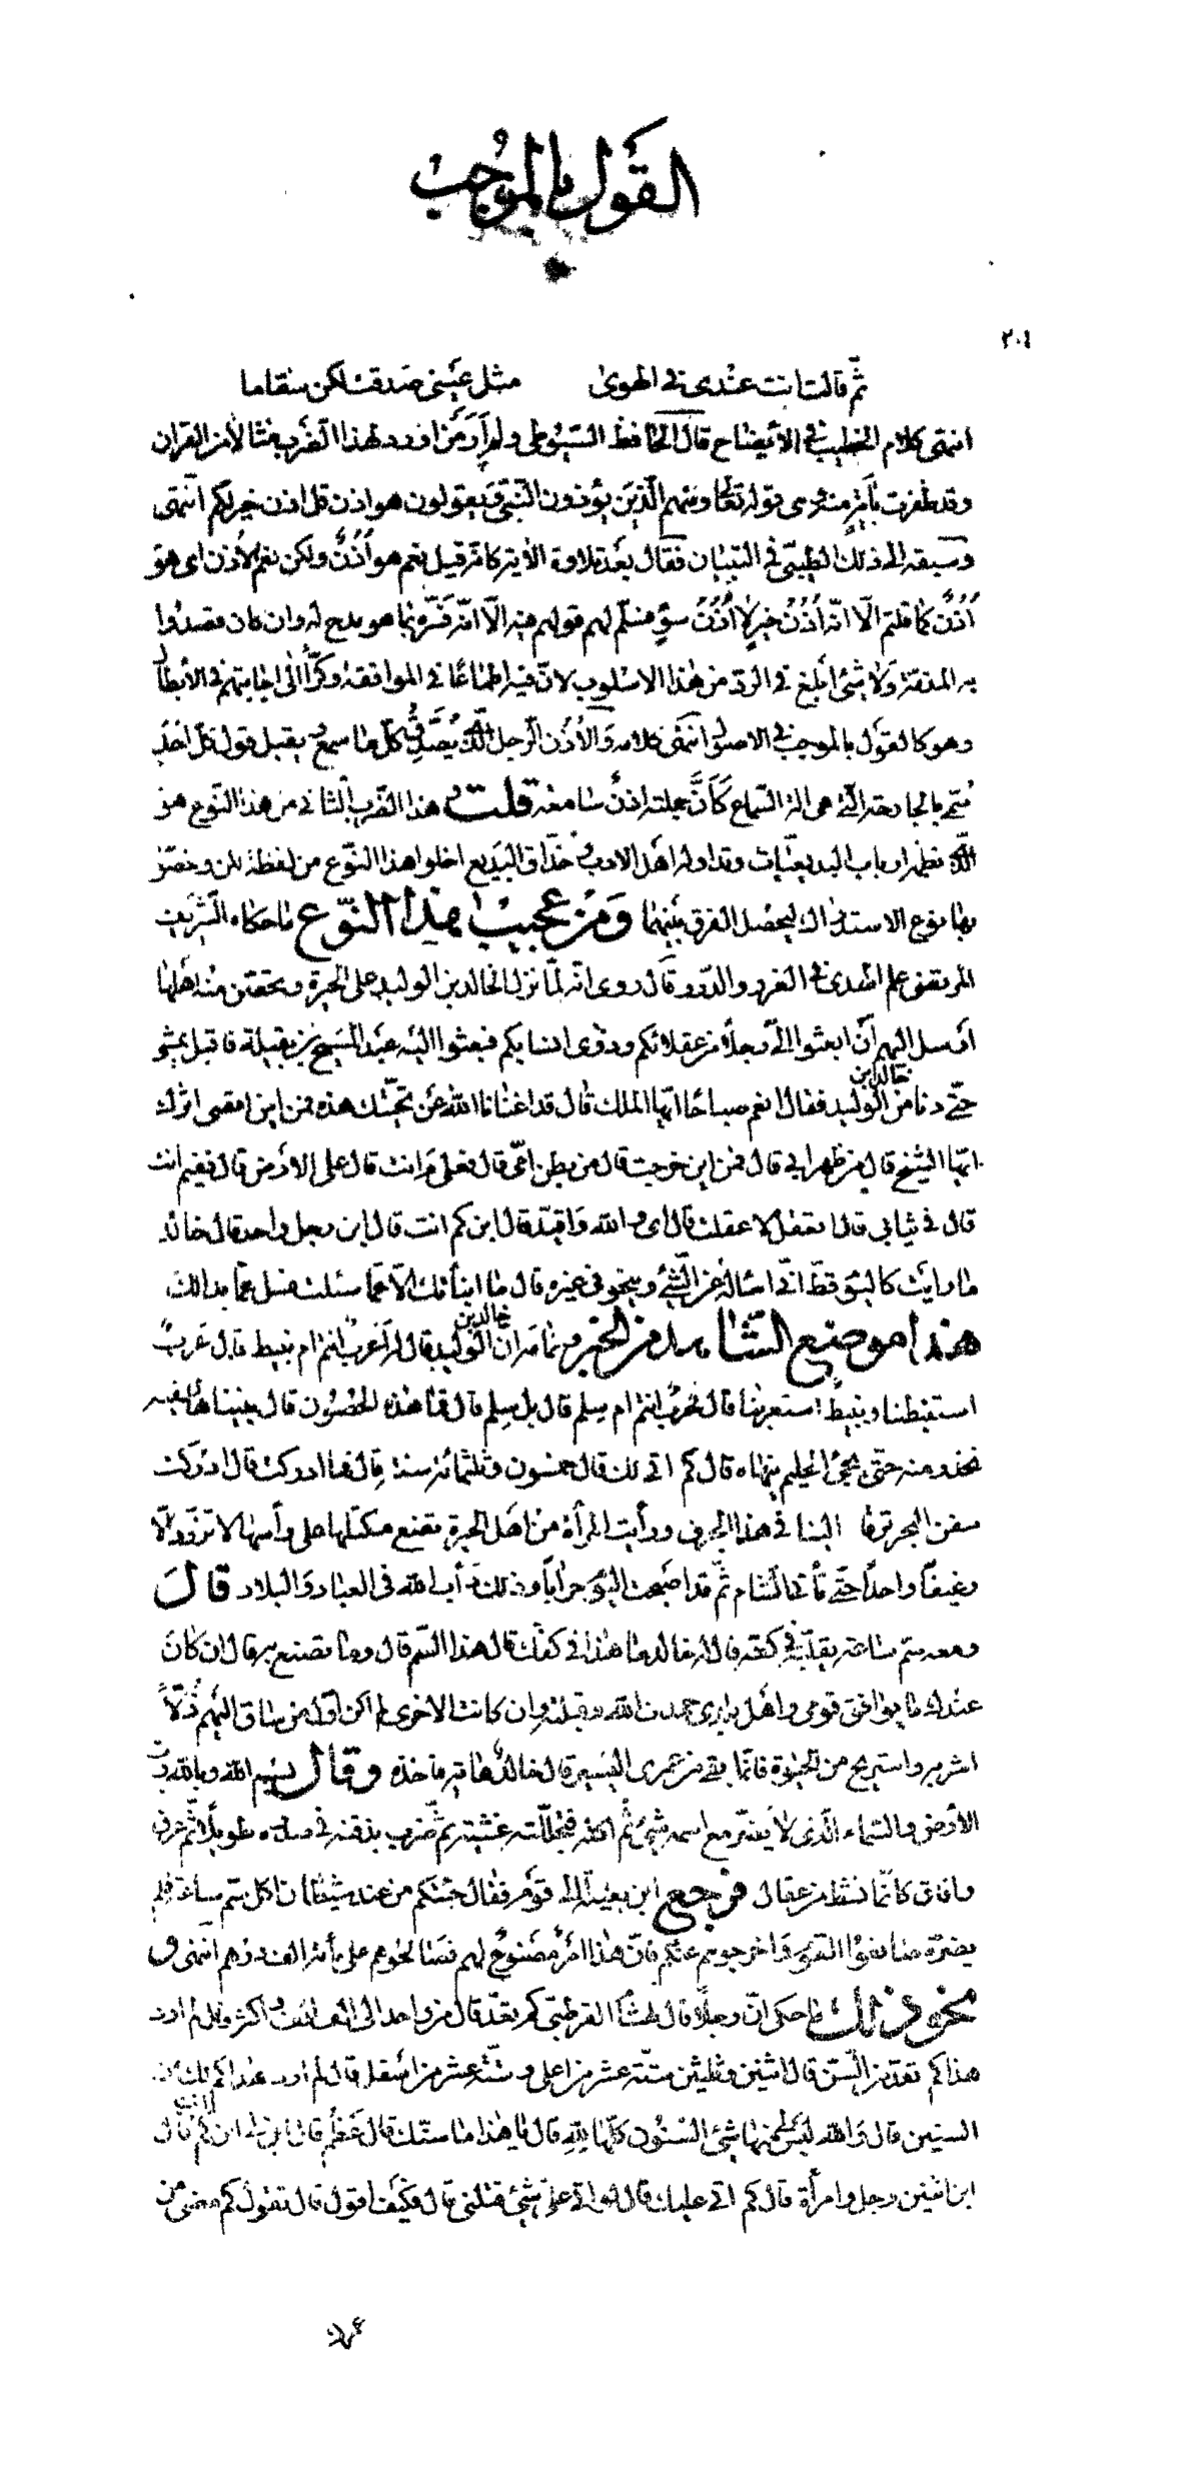 القول بالموجب
٢٠١
ثم قالت انت عندى فى الهوى مثل عينى صدقت لكن سقاما
انتهى كلام الخطيب فى الأيضاح قال الحافظ السيوطى ولم أر من اورد لهذا الضرب مثالا من القران
وقد ظفرت بآية منه وهى قوله تعالى ومنهم الذين يؤذون النبى ويقولون هو اذن قل اذن خير لكم انتهى
وسبقه الى ذلك الطيبى فى التبيان فقال بعد تلاوة الأية كانه قيل نعم هو أذن ولكن نعم الأذن اى هو
أذن كما قلتم الا انه أذن خير لا أذن سوء فسلم لهم قولهم فيه الا انه فسره بما هو مدح له وان كان قصدوا
به المذمة ولا شئ أبلغ فى الرد من هذا الاسلوب لان فيه اطماعا فى الموافقة وكرا الى اجابتهم فى الأبطال
وهو كالقول بالموجب فى الاصول انتهى كلامه والأذن الرجل الذى يصدق كل ما سمع و يقبل قول كل احد
سمى بالجارحة التى هى الة السماع كأن جملته اذن سامعة قلت و هذا الضرب الثانى من هذا النوع هو
الذى نظمه ارباب البديعيات وتداوله اهل الادب و حذاق البديع اخلوا هذا النوع من لفظة لكن وخصوا
بها نوع الاستدراك ليحصل الفرق بينهما ومن عجيب هذا النوع ما حكاه الشريف
المرتضى علم الهدى فى الغرر والدرر قال روى انه لما نزل خالد بن الوليد على الحيرة وتحصن منه اهلها
أرسل اليهم أن ابعثوا الى رجلا من عقلائكم وذوى انسابكم فبعثوا اليه عبد المسيح بن بقيلة فاقبل يمشى
حتى دنا من خالد بن الوليد فقال انعم صباحا ايها الملك قال قد اغنانا الله عن تحيتك هذه فمن اين اقصى اثرك
ايها الشيخ قال من ظهر ابى قال فمن اين خرجت قال من بطن امى قال فعلى م انت قال على الارض قال ففيم انت
قال فى ثيابى قال اتعقل لا عقلت قال اى والله واقيد قال ابن كم انت قال ابن رجل واحد قال خالد
ما رايت كاليوم قط انى اسئاله عن الشئ وينحو فى غيره قال ما انبأتك الا عما سئلت فسل عما بدالك
هذا موضع الشاهد من الخبر و تمامه ان خالد بن الوليد قال له أعرب انتم ام نبيط قال عرب
استنبطنا ونبيط استعربنا قال فحرب انتم ام سلم قال بل سلم قال فما هذه الحصون قال بنيناها لسفيه
نحذر منه حتى يجئ الحليم ينهاه قال كم اتى لك قال خمسون وثلثمائة سنة قال فما ادركت قال ادركت
سفن البحر ترفا الينا فى هذا الجرف ورأيت المرأة من اهل الحيرة تضع مكتلها على رأسها لا تزود الا
رغيفا واحدا حتى تأتى الشام ثم قد اصبحت اليوم خرابا وذلك دأب الله فى العباد والبلاد قال
ومعه سم ساعة يقلبه فى كفه فقال له خالد ما هذا فى كفك قال هذا السم قال وما تصنع به قال ان كان
عندك ما يوافق قومى واهل بلدى حمدت الله وقبلته وان كانت الاخرى لم اكن اول من ساق اليهم ذلا
اشربه واستريح من الحيوة فانما بقى من عمرى اليسير قال خالد هاته فاخذه وقال بسم الله وبالله رب
الأرض والسماء الذى لا يضر مع اسمه شئ ثم اكله فتجللته غشية ثم ضرب بذقنه فى صدره طويلا ثم عرق
وافاق كانما نشط من عقال فرجع ابن بقيلة الى قومه فقال جئتكم من عند شيطان اكل سم ساعة فلم
يضره صانعوا القوم واخرجوهم عنكم فان هذا امر مصنوع لهم فصالحوهم على مأة الف درهم انتهى و
نحو ذلك ما حكى ان رجلا قال لهشام القرطبى كم تعد قال من واحد الى الف الف واكثر قال لم ارد
هذا كم تعد من السن قال اثنين وثلثين ستة عشر من اعلى وستة عشر من اسفل قال لم ارد هذا كم لك من
السنين قال والله ليس لى منها شئ السنون كلها لله قال يا هذا ما سنك قال عظم قال ابن لى ابن كم انت قال
ابن اثنين رجل وامرأة قال كم اتى عليك قال لو اتى على شئ قتلنى قال فكيف اقول قال تقول كم مضى من
عمرك